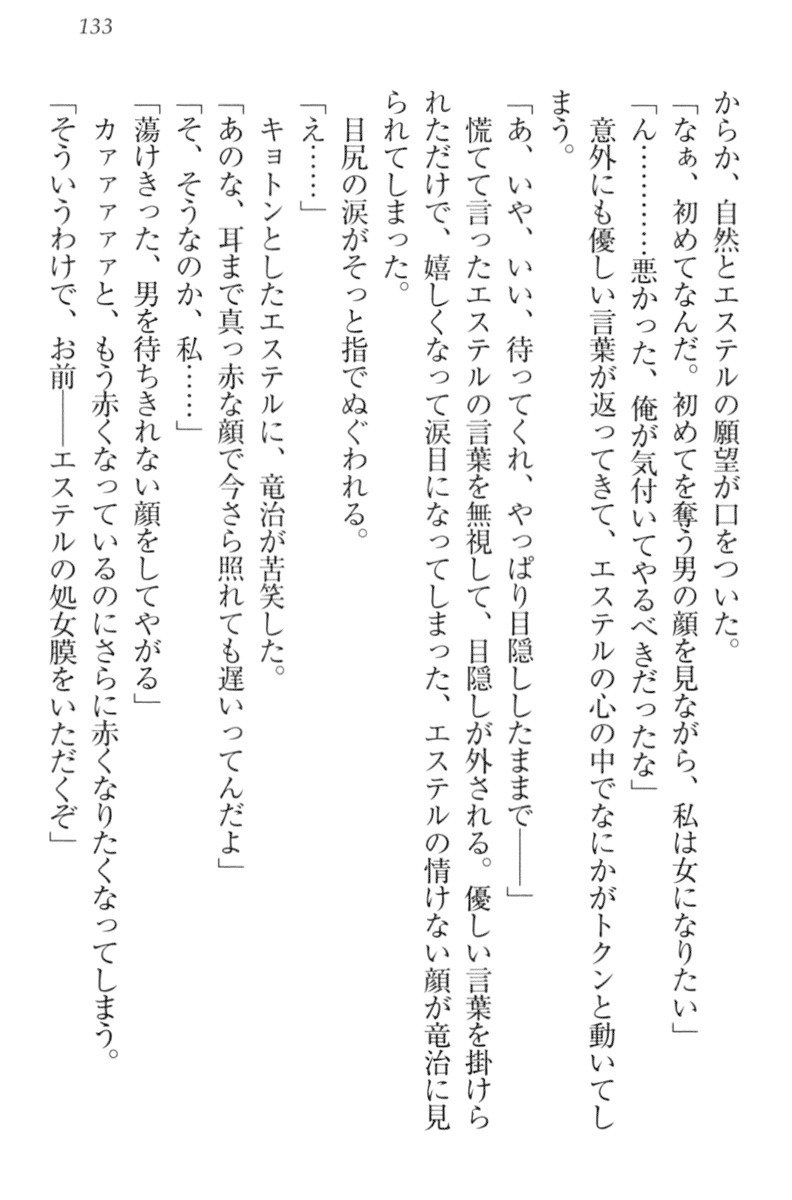 133
からか、自然とエステルの願望が口をついた。
「なぁ、初めてなんだ。初めてを奪う男の顔を見ながら、私は女になりたい」
「ん…………悪かった、俺が気付いてやるべきだったな」
意外にも優しい言葉が返ってきて、エステルの心の中でなにかがトクンと動いてし
まう。
「あ、いや、いい、待ってくれ、やっぱり目隠ししたままで――」
慌てて言ったエステルの言葉を無視して、目隠しが外される。優しい言葉を掛けら
れただけで、嬉しくなって涙目になってしまった、エステルの情けない顔が竜治に見
られてしまった。
目尻の涙がそっと指でぬぐわれる。
「え……」
キョトンとしたエステルに、竜治が苦笑した。
「あのな、耳まで真っ赤な顔で今さら照れても遅いってんだよ」
「そ、そうなのか、私……」
「蕩けきった、男を待ちきれない顔をしてやがる」
カァァァァァと、もう赤くなっているのにさらに赤くなりたくなってしまう。
「そういうわけで、お前――エステルの処女膜をいただくぞ」